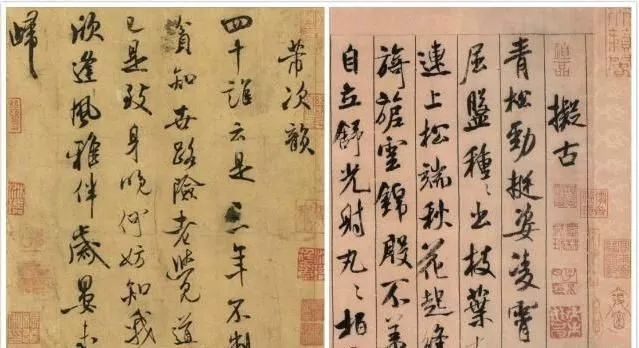 芾次韻
四十誰云是三年不制
貧知世路險老覺道
已是致身晚何妨知我
欣逢風雅伴歲晏未
歸
擬古
青松勁挺姿凌霄
屈盤種〻出枝葉
連上松端秋花起
旖旎雲錦殷不羞
自立舒光射丸〻柏